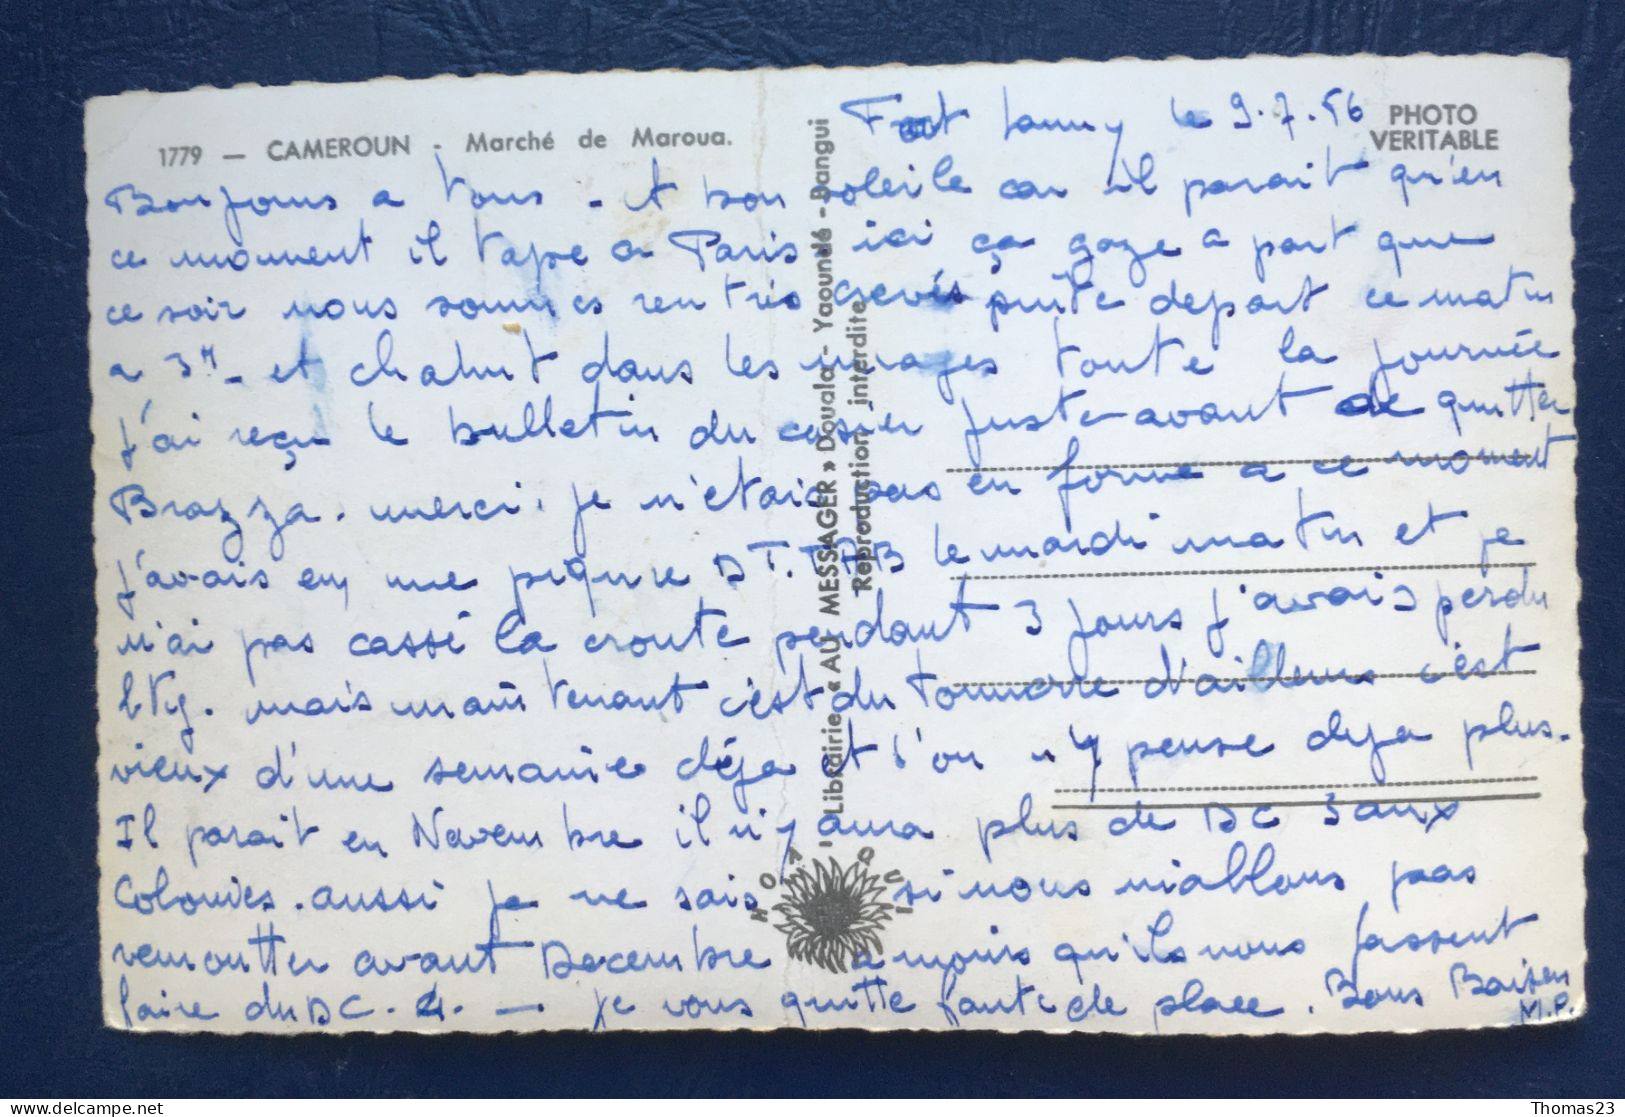 1779 — CAMEROUN - Marché de Maroua.
PHOTO
VERITABLE
Fort Lamy le 9.7.56
Bonjours a tous - et bon soleil car il parait qu'en
ce moment il tape a Paris ici ça gaze a part que
ce soir nous sommes rentrés crevés depart ce matin
a 3H - et chahut dans les nuages toute la journée
j'ai reçu le bulletin du casier juste avant de quitter
Brazza. merci. je n'etais pas en forme a ce moment
j'avais eu une piqure DT.TAB le mardi matin et je
n'ai pas cassé la croute pendant 3 jours j'avais perdu
kg. mais maintenant c'est du tonnerre d'ailleurs c'est
vieux d'une semaine déja et l'on n'y pense deja plus.
Il parait en Novembre il n'y aura plus de DC 3 aux
Colonies. aussi je ne sais si nous n'allons pas
remontter avant Decembre a moins qu'ils nous fassent
faire du DC.4. — je vous quitte faute de place. Bons Baisers
M.P.
Librairie « AU MESSAGER » Douala - Yaoundé - Bangui
Reproduction interdite
HOA-QUI
Thomas23